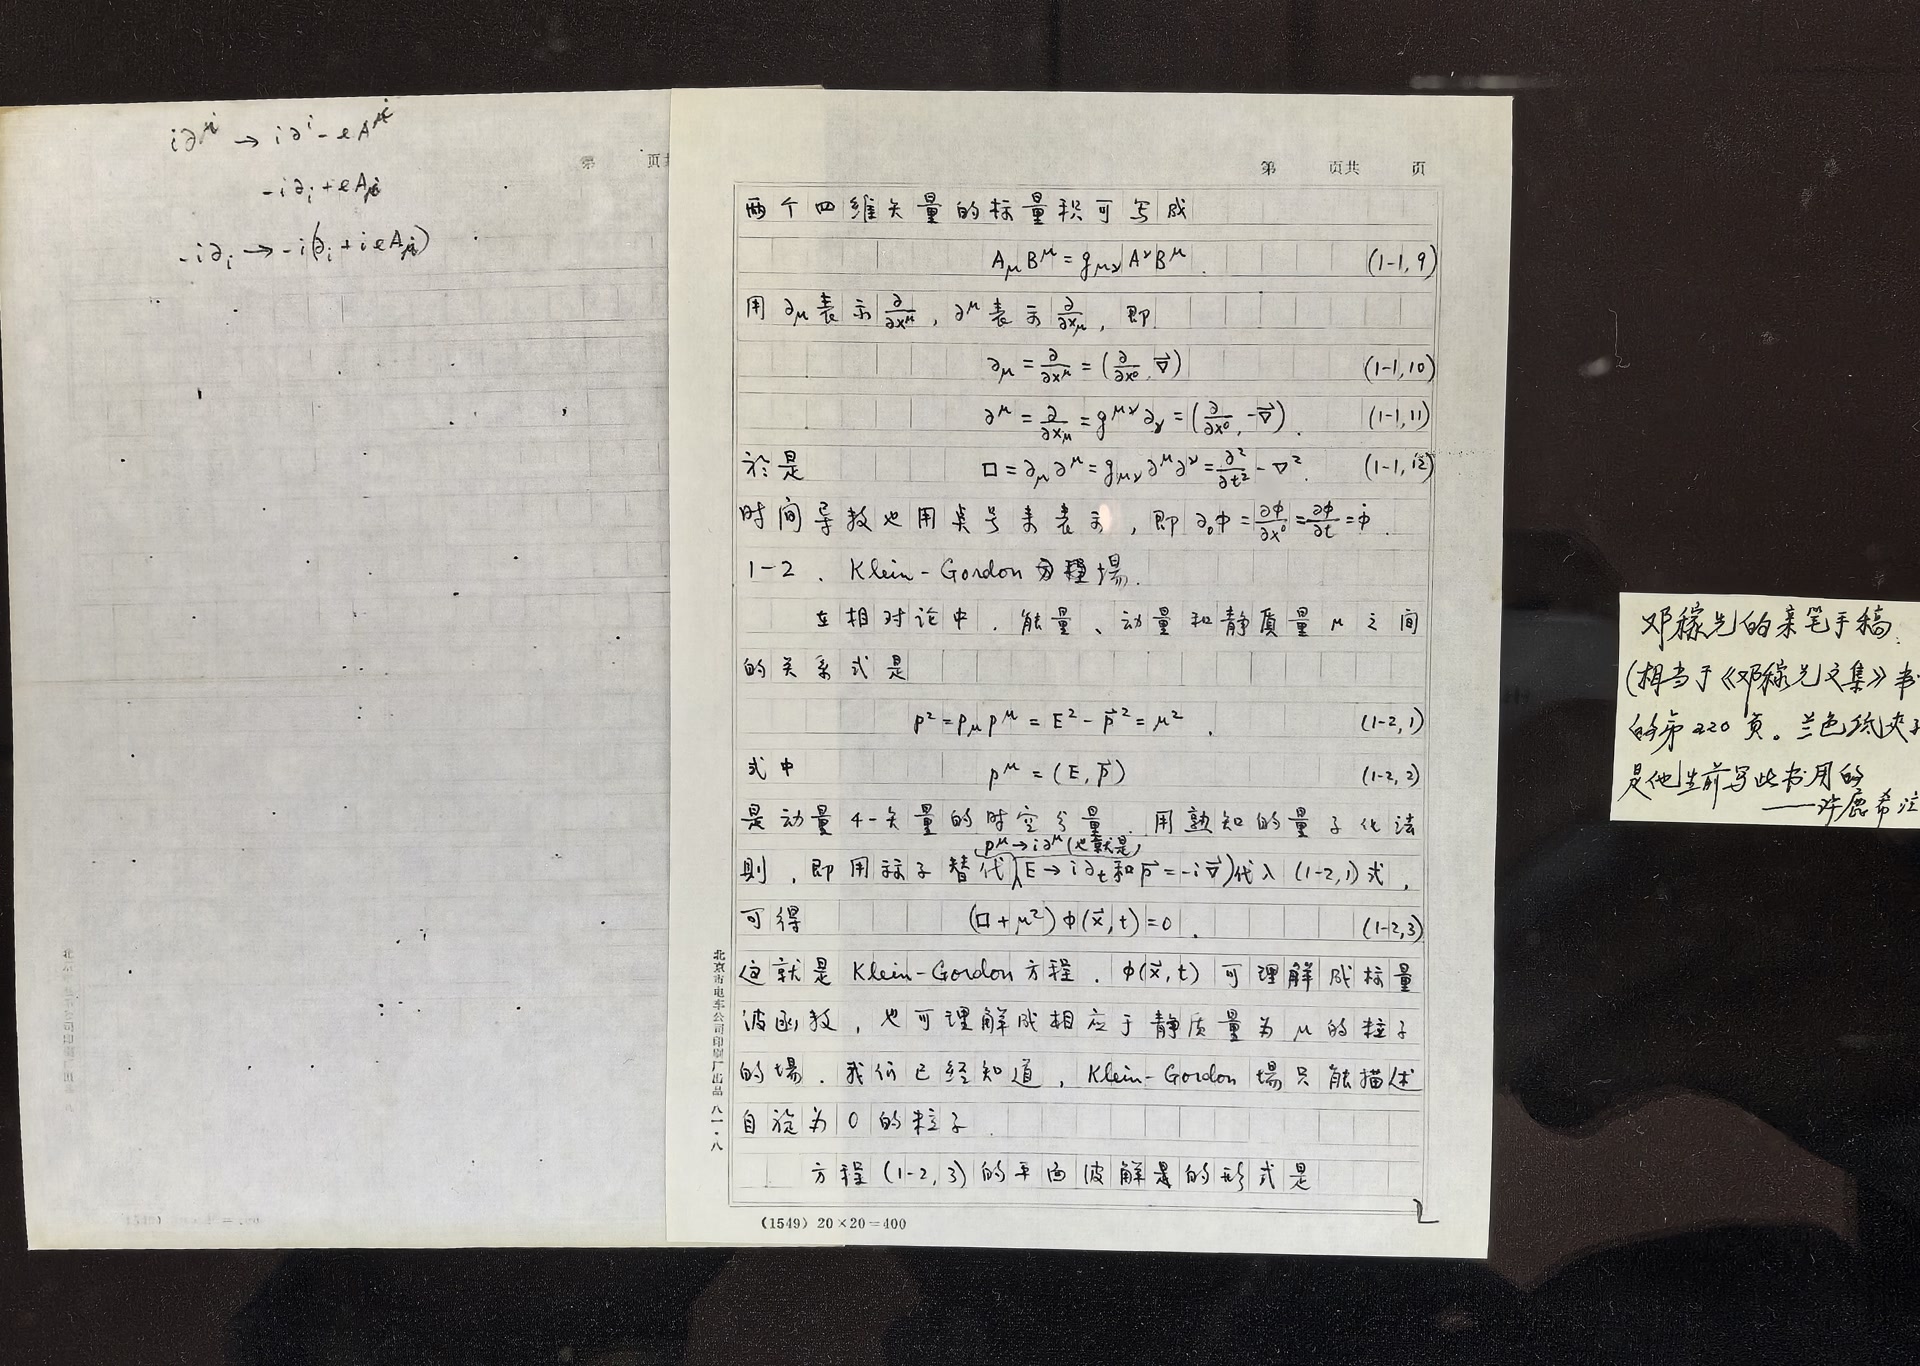 i∂^i → i∂^i - eA^i
-i∂_i + eA_i
-i∂_i → -i(∂_i + ieA_i)
第 页共
第 页共 页
两个四维矢量的标量积可写成
A_μ B^μ = g_μν A^ν B^μ . (1-1,9)
用 ∂_μ 表示 ∂/∂x^μ, ∂^μ 表示 ∂/∂x_μ, 即
∂_μ = ∂/∂x^μ = (∂/∂x⁰, ∇⃗) (1-1,10)
∂^μ = ∂/∂x_μ = g^μν ∂_ν = (∂/∂x⁰, -∇⃗) . (1-1,11)
於是 □ = ∂_μ ∂^μ = g_μν ∂^μ ∂^ν = ∂²/∂t² - ∇² . (1-1,12)
时间导数也用点号来表示, 即 ∂₀φ = ∂φ/∂x⁰ = ∂φ/∂t = φ̇ .
1-2 . Klein-Gordon 場.
在相对论中, 能量、动量和静质量 μ 之间
的关系式是
p² = p_μ p^μ = E² - p⃗² = μ² . (1-2,1)
式中 p^μ = (E, p⃗) (1-2,2)
是动量4-矢量的时空分量. 用熟知的量子化法
p^μ → i∂^μ (也就是
则, 即用算子替代 E → i∂_t 和 p⃗ = -i∇⃗) 代入 (1-2,1) 式,
可得 (□ + μ²) φ(x⃗, t) = 0 . (1-2,3)
这就是 Klein-Gordon 方程. φ(x⃗, t) 可理解成标量
波函数, 也可理解成相应于静质量为 μ 的粒子
的場. 我们已经知道, Klein-Gordon 場只能描述
自旋为 0 的粒子 .
方程 (1-2,3) 的平面波解的形式是
2
(1549) 20×20=400
北京市电车公司印刷厂出品 八一·八
邓稼先的亲笔手稿.
(相当于《邓稼先文集》书
的第220页。兰色纸夹子
是他生前写此书用的
——许鹿希注